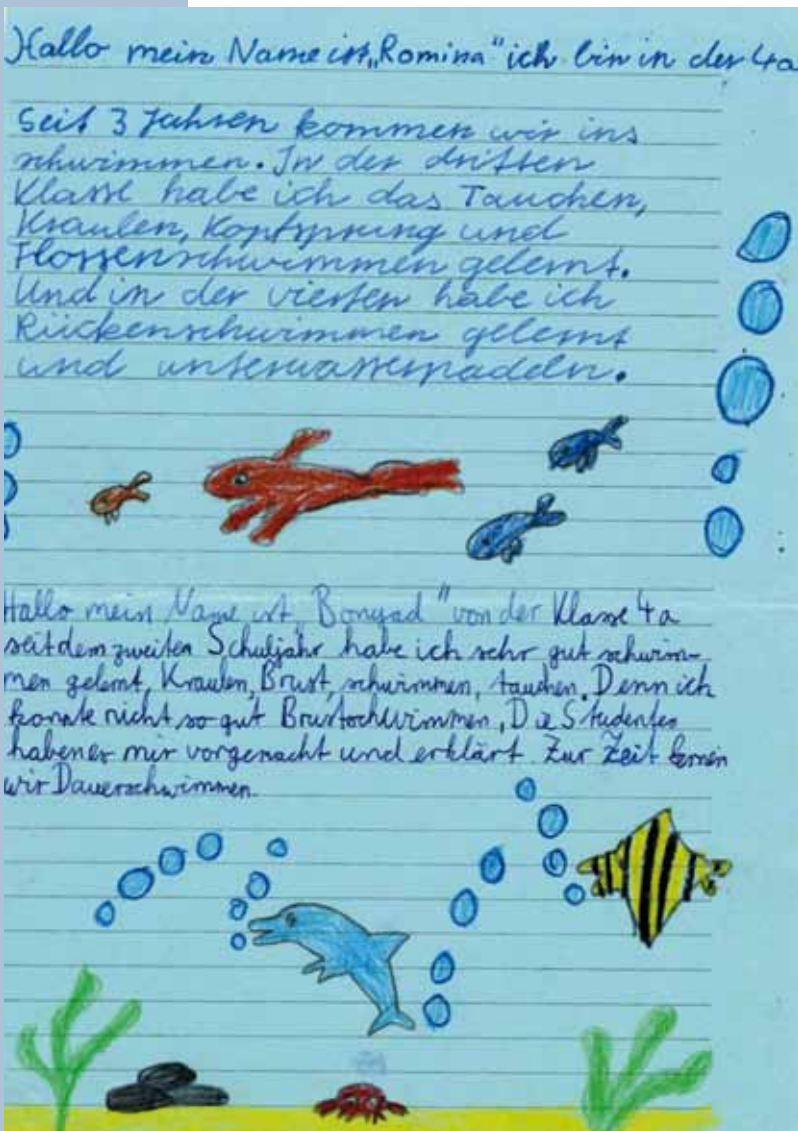 Hallo mein Name ist „Romina" ich bin in der 4a
Seit 3 Jahren kommen wir ins
schwimmen. In der dritten
Klasse habe ich das Tauchen,
Kraulen, Kopfsprung und
Flossenschwimmen gelernt.
Und in der vierten habe ich
Rückenschwimmen gelernt
und unterwasserpaddeln.
Hallo mein Name ist „Bonyad" von der Klasse 4a
seit dem zweiten Schuljahr habe ich sehr gut schwim-
men gelernt, Kraulen, Brust, schwimmen, tauchen. Denn ich
konnte nicht so gut Brustschwimmen, Die Studenten
haben er mir vorgemacht und erklärt. Zur Zeit lernen
wir Dauerschwimmen.